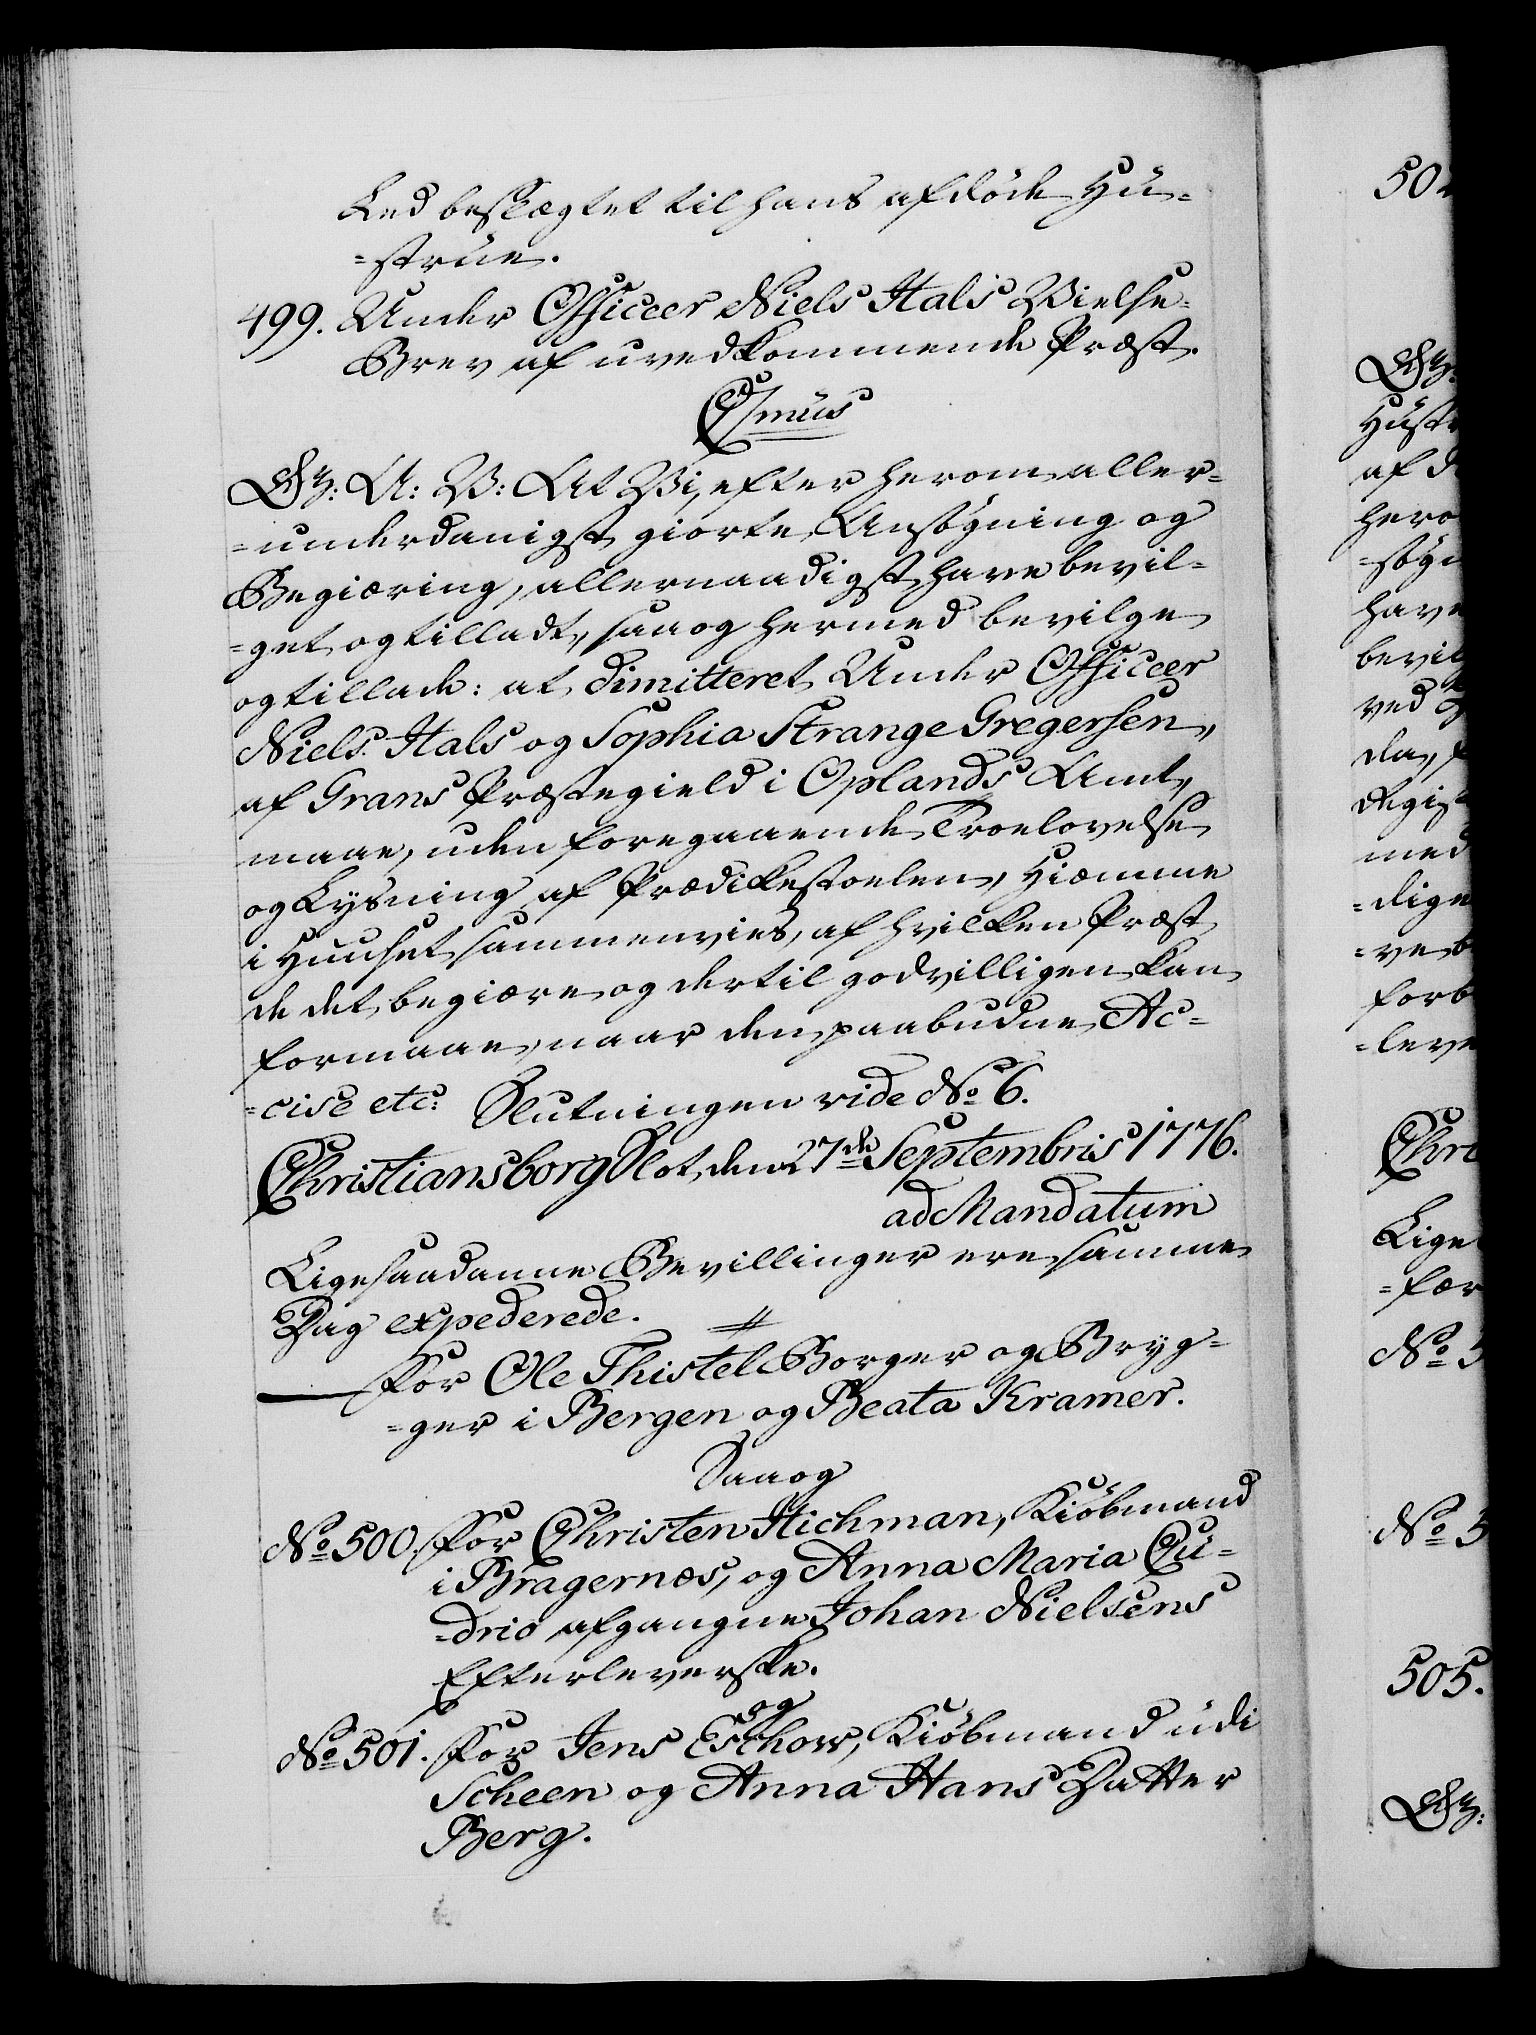 Led beslægtet til hans afdöde Hu-
-strue.
499. Under Officeer Niels Hals Vielse-
Brev af uvedkommende Præst.
Csmus
G: A: V: At Vi, efter herom aller-
-underdanigst giorte Ansögning og
Begiæring, allernaadigst have bevil-
-get og tilladt, saa og hermed bevilge
og tillade: at dimitteret Under Officeer
Niels Hals og Sophia Strange Gregersen,
af Grans Præstegield i Oplands Amt,
maae, uden foregaaende Troelovelse
og Lysning af Prædikestoelen, hiemme
i Huuset sammenvies, af hvilken Præst
de det begiære og dertil godvilligen kan
formaae, naar den paabudne Ac-
-cise etc: Slutningen vide No 6.
Christiansborg Slot, den 27de Septembris 1776.
ad Mandatum
Ligesaadanne Bevillinger ere samme
Dag expederede.
For Ole Thistel Borger og Bryg-
-ger i Bergen og Beata Kramer.
Saa og
No 500. For Christen Hichman, Kiöbmand
i Bragernæs, og Anna Maria Cu-
-drio afgangne Johan Nielsens
Efterleverske.
og
No 501. For Jens Eschow, Kiöbmand udi
Scheen og Anna Hans Datter
Berg.
505.